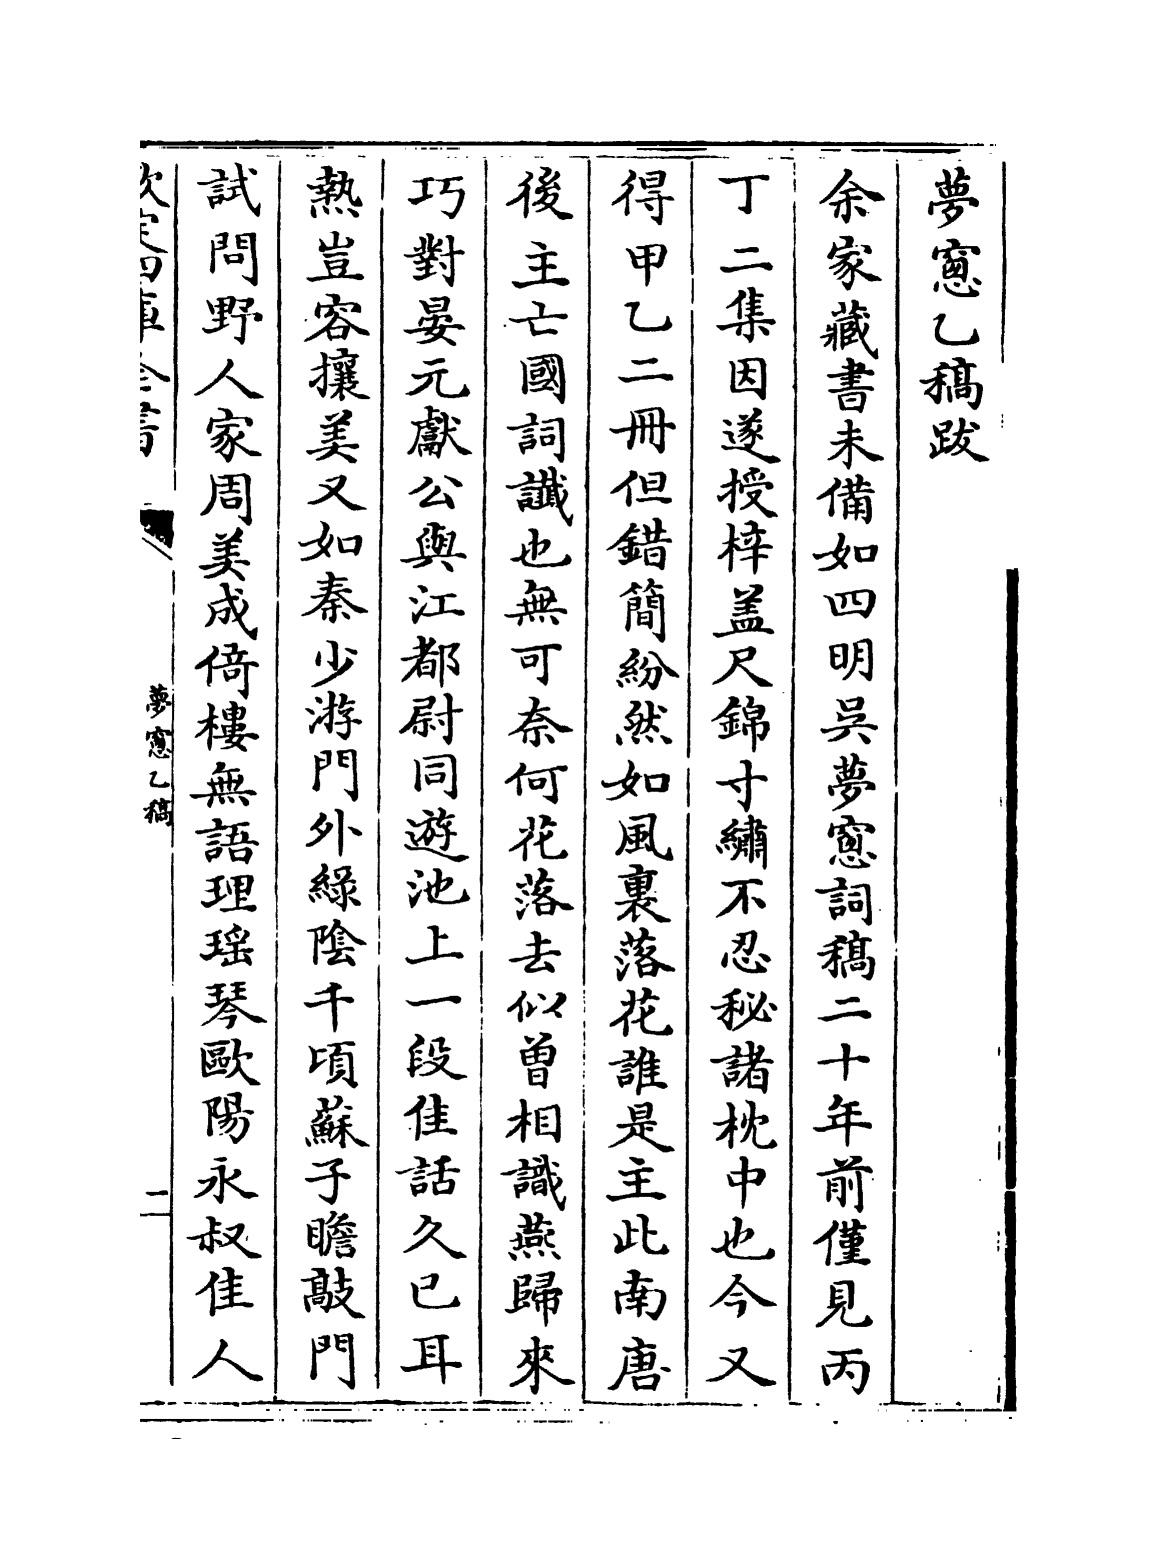 夢窻乙稿跋
余家藏書未備如四明吳夢窻詞稿二十年前僅見丙
丁二集因遂授梓盖尺錦寸繡不忍秘諸枕中也今又
得甲乙二冊但錯簡紛然如風裏落花誰是主此南唐
後主亡國詞讖也無可奈何花落去似曾相識燕歸來
巧對晏元獻公與江都尉同遊池上一段佳話久已耳
熱豈容攘美又如秦少游門外綠陰千頃蘇子瞻敲門
試問野人家周美成倚樓無語理瑶琴歐陽永叔佳人
欽定四庫全書
夢窻乙稿
二